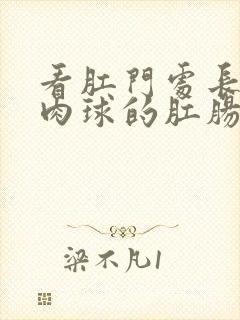 看肛門處長
肉球的肛腸
梁不凡1